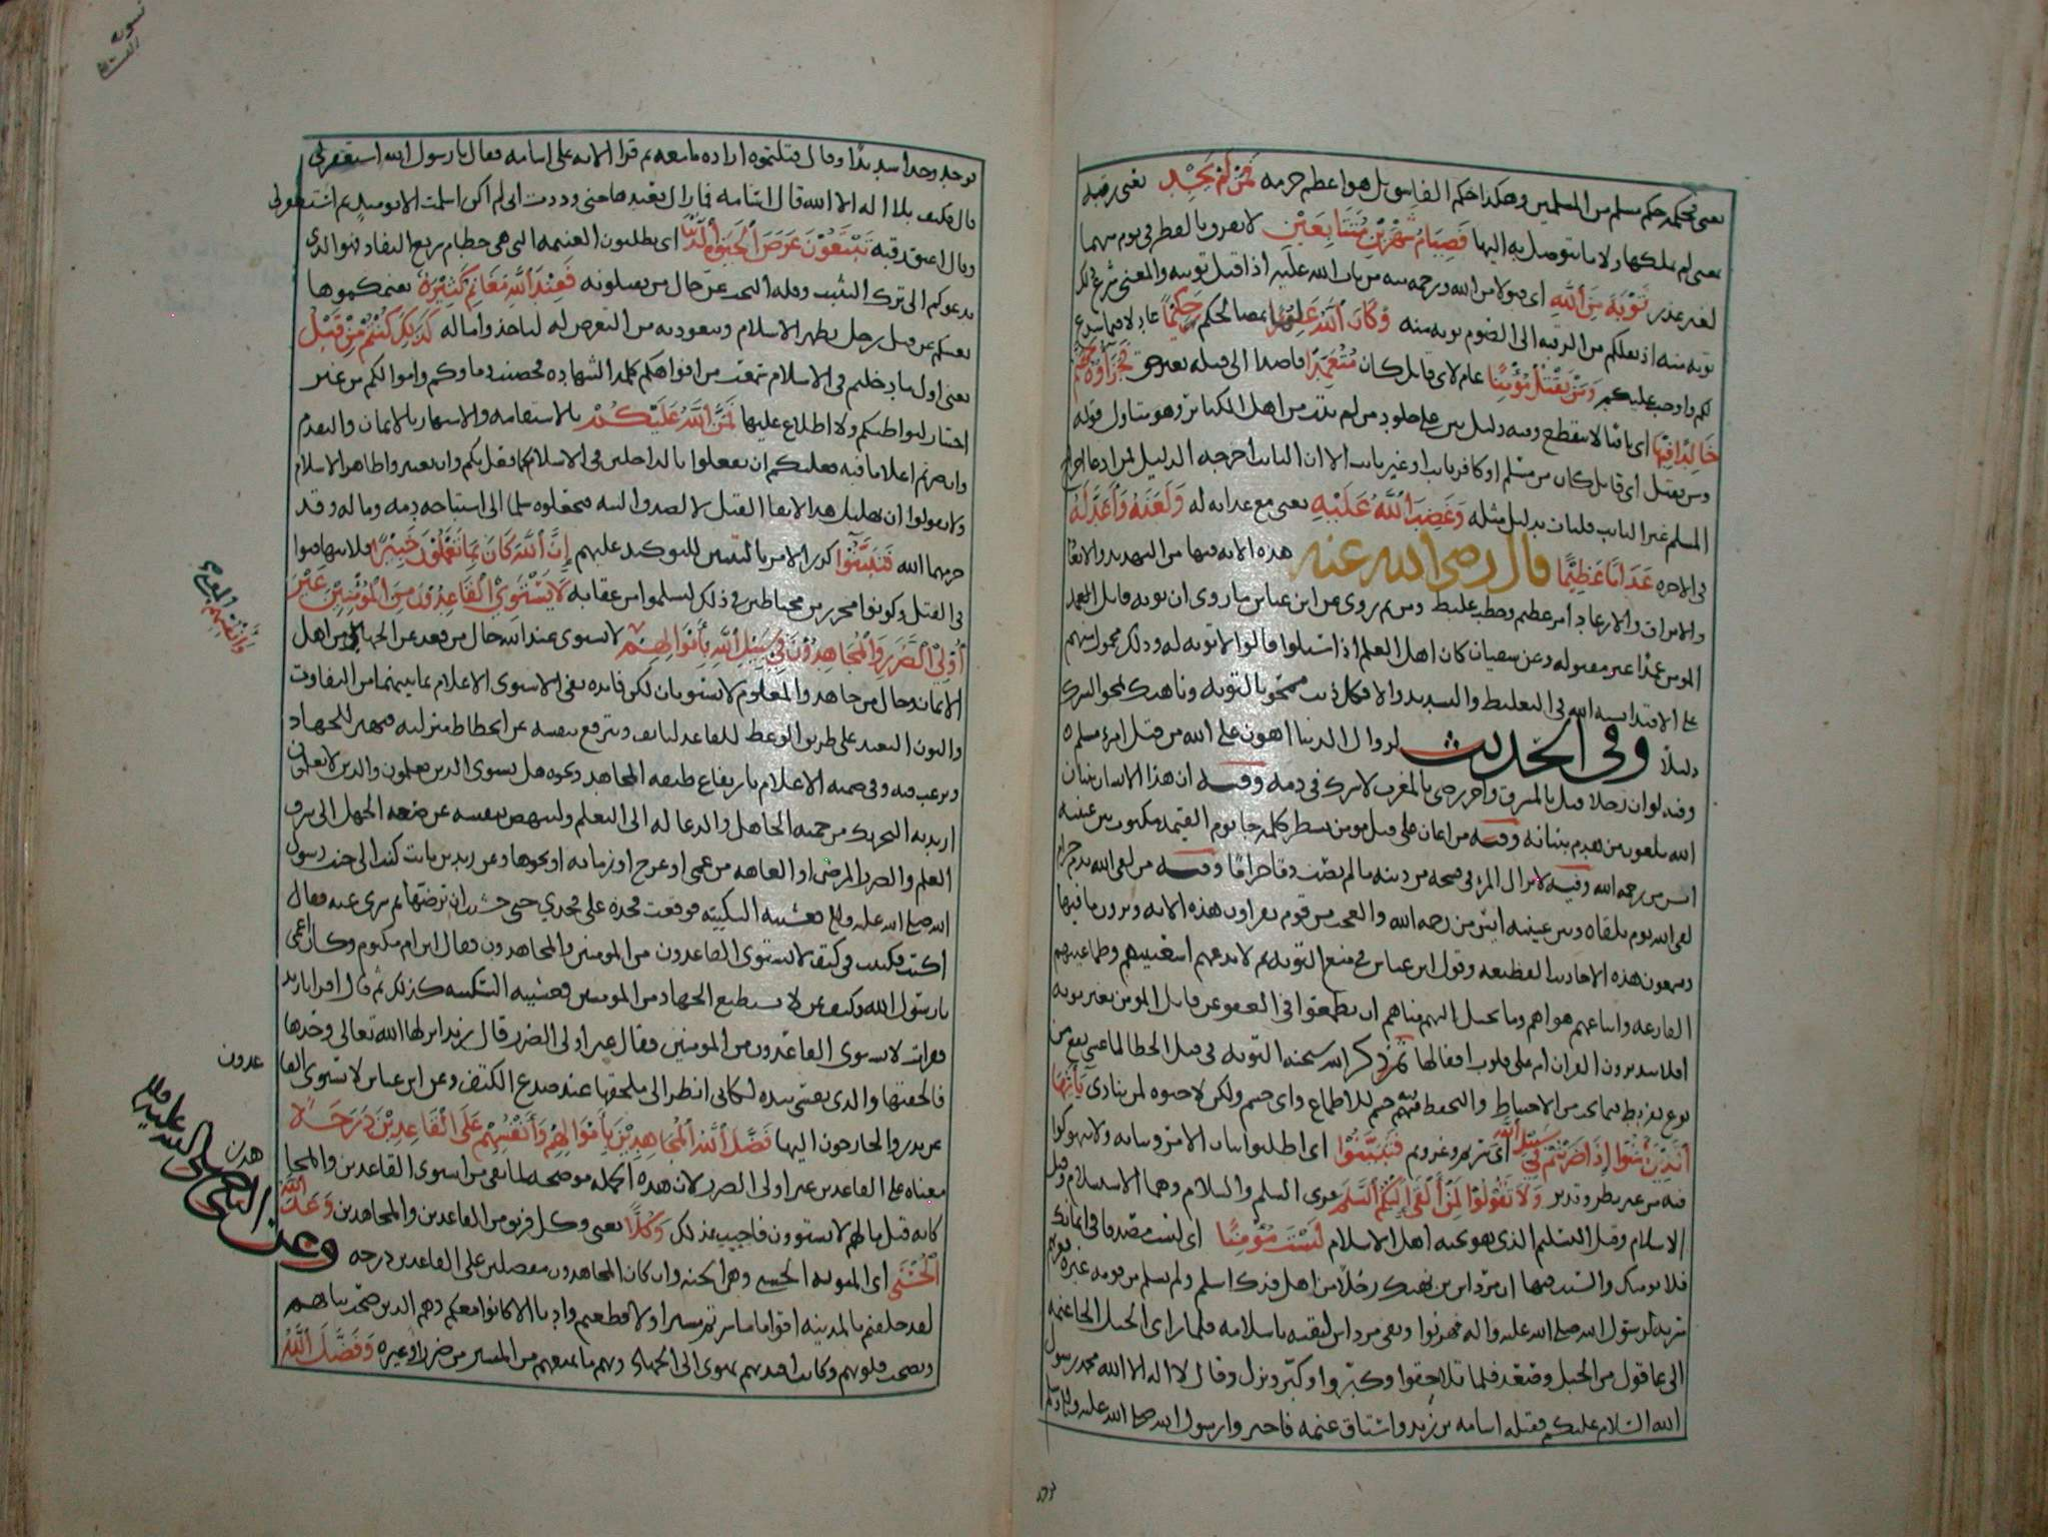 يعني فحكمه حكم مسلم من المسلمين وهكذا حكم الفاسق بل هو اعظم حرمه فمن لم يجد يعني رقبه
يعني لم يملكها ولا ما يتوصل به اليها فصيام شهرين متتابعين لا يفرق بالفطر في يوم منهما
لغير عذر توبة من الله اي قبولا من الله ورحمه منه من تاب الله عليه اذا قبل توبته والمعنى شرع ذلك
توبه منه اذ نقلكم من الرقبه الى الصوم توبه منه وكان الله عليما بمصالحكم حكيما عادلا فيما شرع
لكم واوجب عليكم ومن يقتل مؤمنا عام لاي قاتل كان متعمدا قاصدا الى قتله بغير حق فجزاؤه جهنم
خالدا فيها اي باقيا لا ينقطع وفيه دليل بين على خلود من لم يتب من اهل الكبائر وهو يتناول قوله
ومن يقتل اي قاتل كان من مسلم او كافر تاب او غير تاب الا ان التايب اخرجه الدليل فمن ادعا اخراج
المسلم غير التايب فليات بدليل مثله وغضب الله عليه يعني مع عذابه له ولعنه واعد له
في الاخره عذابا عظيما قال رضي الله عنه هذه الايه فيها من التهديد والايعاد
والابراق والارعاد امر عظيم وخطب غليظ ومن ثم روي عن ابن عباس ما روي ان توبه قاتل المؤمن
عمدا غير مقبوله وعن سفيان كان اهل العلم اذا سئلوا قالوا لا توبه له وذلك محمول منهم
على الاقتدا بسنه الله في التغليظ والتشديد والا فكل ذنب ممحو بالتوبه وناهيك بمحو الشرك
دليلا وفي الحديث لزوال الدنيا اهون على الله من قتل امرء مسلم
وفيه لو ان رجلا قتل بالمشرق واخر رضي بالمغرب لاشرك في دمه وفيه ان هذا الانسان بنيان
الله ملعون من هدم بنيانه وفيه من اعان على قتل مومن بشطر كلمه جا يوم القيمه مكتوب بين عينيه
ايس من رحمه الله وفيه لا يزال المرء في فسحه من دينه ما لم يصب دما حراما وفيه من لقي الله بدم حرام
لقي الله يوم يلقاه وبين عينيه ايس من رحمه الله والعجب من قوم يقراون هذه الايه ويرون ما فيها
ويسمعون هذه الاحاديث العظيمه وقول ابن عباس في منع التوبه ثم لا تدعهم اشعبيتهم وطماعيتهم
الفارغه واتباعهم هواهم وما يخيل اليهم مناهم ان يطمعوا في العفو عن قاتل المومن بغير توبه
افلا يتدبرون القران ام على قلوب اقفالها ثم ذكر الله سبحنه التوبه في قتل الخطا لما عسى يقع من
نوع تفريط فيما يجب من الاحتياط والتحفظ فيه حسم للاطماع واي حسم ولكن لا حيوه لمن ينادى يا ايها
الذين امنوا اذا ضربتم في سبيل الله اي سرتم وغزوتم فتبينوا اي اطلبوا بيان الامر وثباته ولا تهوكوا
فيه من غير نظر وتدبر ولا تقولوا لمن القى اليكم السلم قري السلم والسلام وهما الاستسلام وقيل
الاسلام وقيل التسليم الذي هو تحيه اهل الاسلام لست مؤمنا اي لست مصدقا في ايمانك
ان مرداس بن نهيك رجلا من اهل فدك اسلم ولم يسلم من قومه غيره
سريه لرسول الله صلى الله عليه واله فهربوا وبقي مرداس لثقته باسلامه فلما راى الخيل الجا غنمه
الى عاقول من الجبل وصعد فلما تلاحقوا وكبروا وكبر ونزل وقال لا اله الا الله محمد رسول
الله السلام عليكم فقتله اسامه بن زيد واستاق غنمه فاخبروا رسول الله صلى الله عليه واله وسلم
فوجد وجدا شديدا وقال قتلتموه اراده ما معه ثم قرا الايه على اسامه فقال يا رسول الله استغفر لي
قال فكيف بلا اله الا الله قال اسامه فما زال يعيدها حتى وددت اني لم اكن اسلمت الا يوميذ ثم استغفر لي
وقال اعتق رقبه تبتغون عرض الحيوة الدنيا اي تطلبون الغنيمه التي هي حطام سريع النفاد فهو الذي
يدعوكم الى ترك التثبت وقله البحث عن حال من تقتلونه فعند الله مغانم كثيرة يغنمكموها
يغنيكم عن قتل رجل يظهر الاسلام ويتعوذ به من التعرض له لتاخذوا ماله كذلك كنتم من قبل
يعني اول ما دخلتم في الاسلام سمعت من افواهكم كلمه الشهاده فحصنت دماوكم واموالكم من غير
اختبار لبواطنكم ولا اطلاع عليها فمن الله عليكم بالاستقامه والاشتهار بالايمان والتقدم
وان صرتم اعلاما فيه فعليكم ان تفعلوا بالداخلين في الاسلام كما فعل بكم وان تعتبروا ظاهر الاسلام
ولا تقولوا ان تهليل هذا لاتقا القتل لا لصدق النيه فتجعلوه سلما الى استباحه دمه وماله وقد
حرمهما الله فتبينوا كرر الامر بالتبين للتوكيد عليهم إن الله كان بما تعملون خبيرا فلا تتهافتوا
في القتل وكونوا محترزين محتاطين في ذلك لتسلموا من عقابه لا يستوي القاعدون من المؤمنين غير
أولي الضرر والمجاهدون في سبيل الله بأموالهم لا يستوي عند الله حال من قعد عن الجهاد من اهل
الايمان وحال من جاهد والمعلوم لا يستويان لكن فايده نفي الاستوى الاعلام بما بينهما من التفاوت
والبون البعيد على طريق الوعظ للقاعد ليانف ويترفع بنفسه عن انحطاط منزلته فيهتز للجهاد
ويرغب فيه وفي ضمنه الاعلام بارتفاع طبقه المجاهد ونحوه هل يستوي الذين يعلمون والذين لا يعلمون
اريد به التحريك من حميه الجاهل والدعا له الى التعلم ولينهض بنفسه عن ضعه الجهل الى شرف
العلم والضرر المرض او العاهه من عمى او عرج او زمانه او نحوها وعن زيد بن ثابت كنت الى جنب رسول
الله صلى الله عليه واله فغشيته السكينه فوقعت فخذه على فخذي حتى خشيت ان ترضها ثم سري عنه فقال
اكتب فكتبت في كتف لا يستوي القاعدون من المومنين والمجاهدون فقال ابن ام مكتوم وكان اعمى
يا رسول الله وكيف بمن لا يستطيع الجهاد من المومنين فغشيته السكينه كذلك ثم قال اقرا يا زيد
فقرات لا يستوي القاعدون من المومنين فقال غير اولي الضرر قال زيد انزلها الله تعالى وحدها
فالحقتها والذي نفسي بيده لكاني انظر الى ملحقها عند صدع الكتف وعن ابن عباس لا يستوي القا
عدون
عن بدر والخارجون اليها فضل الله المجاهدين بأموالهم وأنفسهم على القاعدين درجة
معناه على القاعدين غير اولي الضرر لان هذه الجمله موضحه لما نفي من استوى القاعدين والمجا
هدين
كانه قيل ما لهم لا يستوون فاجيب بذلك وكلا يعني وكل فريق من القاعدين والمجاهدين وعد الله
الحسنى اي المثوبه الحسنى وهي الجنه وان كان المجاهدون مفضلين على القاعدين درجه
وعن النبي صلى الله عليه واله
لقد خلفتم بالمدينه اقواما ما سرتم مسيرا ولا قطعتم واديا الا كانوا معكم وهم الذين صحت نياتهم
ونصحت قلوبهم وكانت افئدتهم تهوى الى الجهاد وبهم ما يمنعهم من المسير من ضرر او غيره وفضل الله